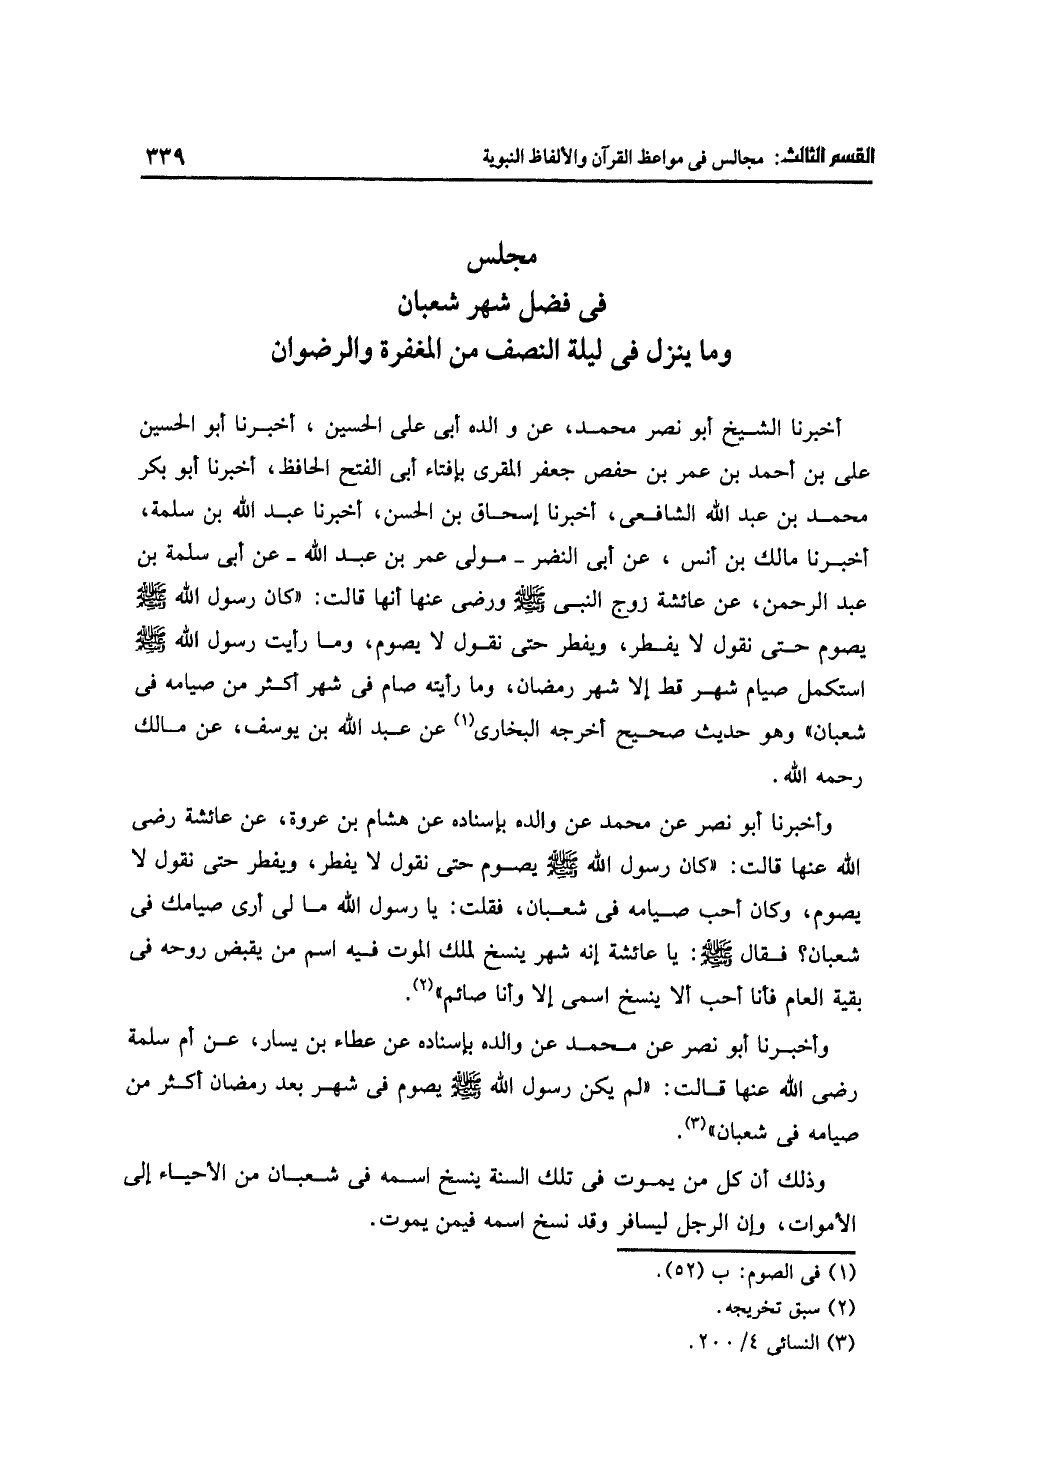 القسم الثالث: مجالس فى مواعظ القرآن والألفاظ النبوية ٣٣٩
مجلس
فى فضل شهر شعبان
وما ينزل فى ليلة النصف من المغفرة والرضوان
أخبرنا الشيخ أبو نصر محمد، عن و الده أبى على الحسين ، أخبرنا أبو الحسين
على بن أحمد بن عمر بن حفص جعفر المقرى بإفتاء أبى الفتح الحافظ، أخبرنا أبو بكر
محمد بن عبد الله الشافعى، أخبرنا إسحاق بن الحسن، أخبرنا عبد الله بن سلمة،
أخبرنا مالك بن أنس ، عن أبى النضر ـ مولى عمر بن عبد الله ـ عن أبى سلمة بن
عبد الرحمن، عن عائشة زوج النبى ﷺ ورضى عنها أنها قالت: «كان رسول الله ﷺ
يصوم حتى نقول لا يفطر، ويفطر حتى نقول لا يصوم، وما رأيت رسول الله ﷺ
استكمل صيام شهر قط إلا شهر رمضان، وما رأيته صام فى شهر أكثر من صيامه فى
شعبان» وهو حديث صحيح أخرجه البخارى(١) عن عبد الله بن يوسف، عن مالك
رحمه الله .
وأخبرنا أبو نصر عن محمد عن والده بإسناده عن هشام بن عروة، عن عائشة رضى
الله عنها قالت: «كان رسول الله ﷺ يصوم حتى نقول لا يفطر، ويفطر حتى نقول لا
يصوم، وكان أحب صيامه فى شعبان، فقلت: يا رسول الله ما لى أرى صيامك فى
شعبان؟ فقال ﷺ: يا عائشة إنه شهر ينسخ لملك الموت فيه اسم من يقبض روحه فى
بقية العام فأنا أحب ألا ينسخ اسمى إلا وأنا صائم»(٢).
وأخبرنا أبو نصر عن محمد عن والده بإسناده عن عطاء بن يسار، عن أم سلمة
رضى الله عنها قالت: «لم يكن رسول الله ﷺ يصوم فى شهر بعد رمضان أكثر من
صيامه فى شعبان»(٣).
وذلك أن كل من يموت فى تلك السنة ينسخ اسمه فى شعبان من الأحياء إلى
الأموات، وإن الرجل ليسافر وقد نسخ اسمه فيمن يموت.
(١) فى الصوم: ب (٥٢).
(٢) سبق تخريجه.
(٣) النسائى ٤/ ٢٠٠.